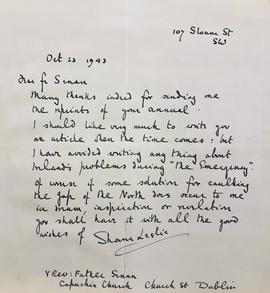 107 Sloane St
SW
Oct 23 1943
Dear Fr Senan
Many thanks indeed for sending me
the reprints of your annual.
I should like very much to write you
an article when the time comes: but
I have avoided writing any thing about
Ireland's problems during "the Emergency".
Of course if some solution for caulking
the gap of the North does occur to me
in dream, inspiration or revelation
you shall have it with all the good
wishes of Shane Leslie
V Rev: Father Senan
Capuchin Church Church St Dublin